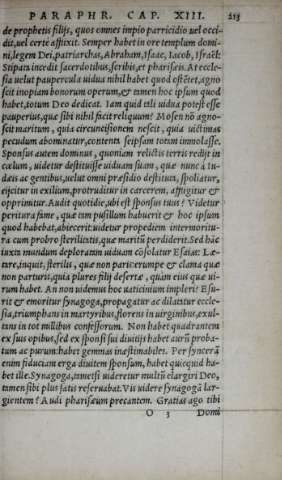 PARAPHR. CAP. XIII. 213
de prophetis filijs, quos omnes impio parricidio uel occi-
dit, uel certe afflixit. Semper habet in ore templum domi-
ni, legem Dei, patriarchas, Abraham, Isaac, Iacob, Israël:
Stipata incedit sacerdotibus, scribis, et phariseis. At eccle-
sia uelut paupercula uidua nihil habet quod ostētet, agno
scit inopiam bonorum operum, & tamen hoc ipsum quod
habet, totum Deo dedicat. Iam quid tali uidua potest esse
pauperius, quæ sibi nihil facit reliquum? Mosen nō agno-
scit maritum, quia circuncisionem nescit, quia uictimas
pecudum abominatur, contenta seipsam totam immolasse.
Sponsus autem dominus, quoniam relictis terris redijt in
cœlum, uidetur destituisse uiduam suam, quæ nunc à Iu-
dæis ac gentibus, uelut omni præsidio destituta, spoliatur,
eijcitur in exilium, protruditur in carcerem, affligitur &
opprimitur. Audit quotidie, ubi est sponsus tuus? Videtur
peritura fame, quæ cum pusillum habuerit & hoc ipsum
quod habebat, abiecerit: uidetur propediem intermoritu-
ra cum probro sterilitatis, quæ maritū perdiderit. Sed hāc
iuxta mundum deploratam uiduam cōsolatur Esaias: Læ-
tare, inquit, sterilis, quæ non paris: erumpe & clama quæ
non parturis, quia plures filij desertæ, quàm eius quæ ui-
rum habet. An non uidemus hoc uaticinium impleri? Esu-
rit & emoritur synagoga, propagatur ac dilatatur eccle-
sia, triumphans in martyribus, florens in uirginibus, exul-
tans in tot millibus confessorum. Non habet quadrantem
ex suis opibus, sed ex sponsi sui diuitijs habet aurū proba-
tum ac purum: habet gemmas inæstimabiles. Per syncerā
enim fiduciam erga diuitem sponsum, habet quicquid ha-
bet ille. Synagoga, tametsi uideretur multū elargiri Deo,
tamen sibi plus satis reseruabat. Vis uidere synagogā lar-
gientem? Audi pharisæum precantem. Gratias ago tibi
O 3 Domi